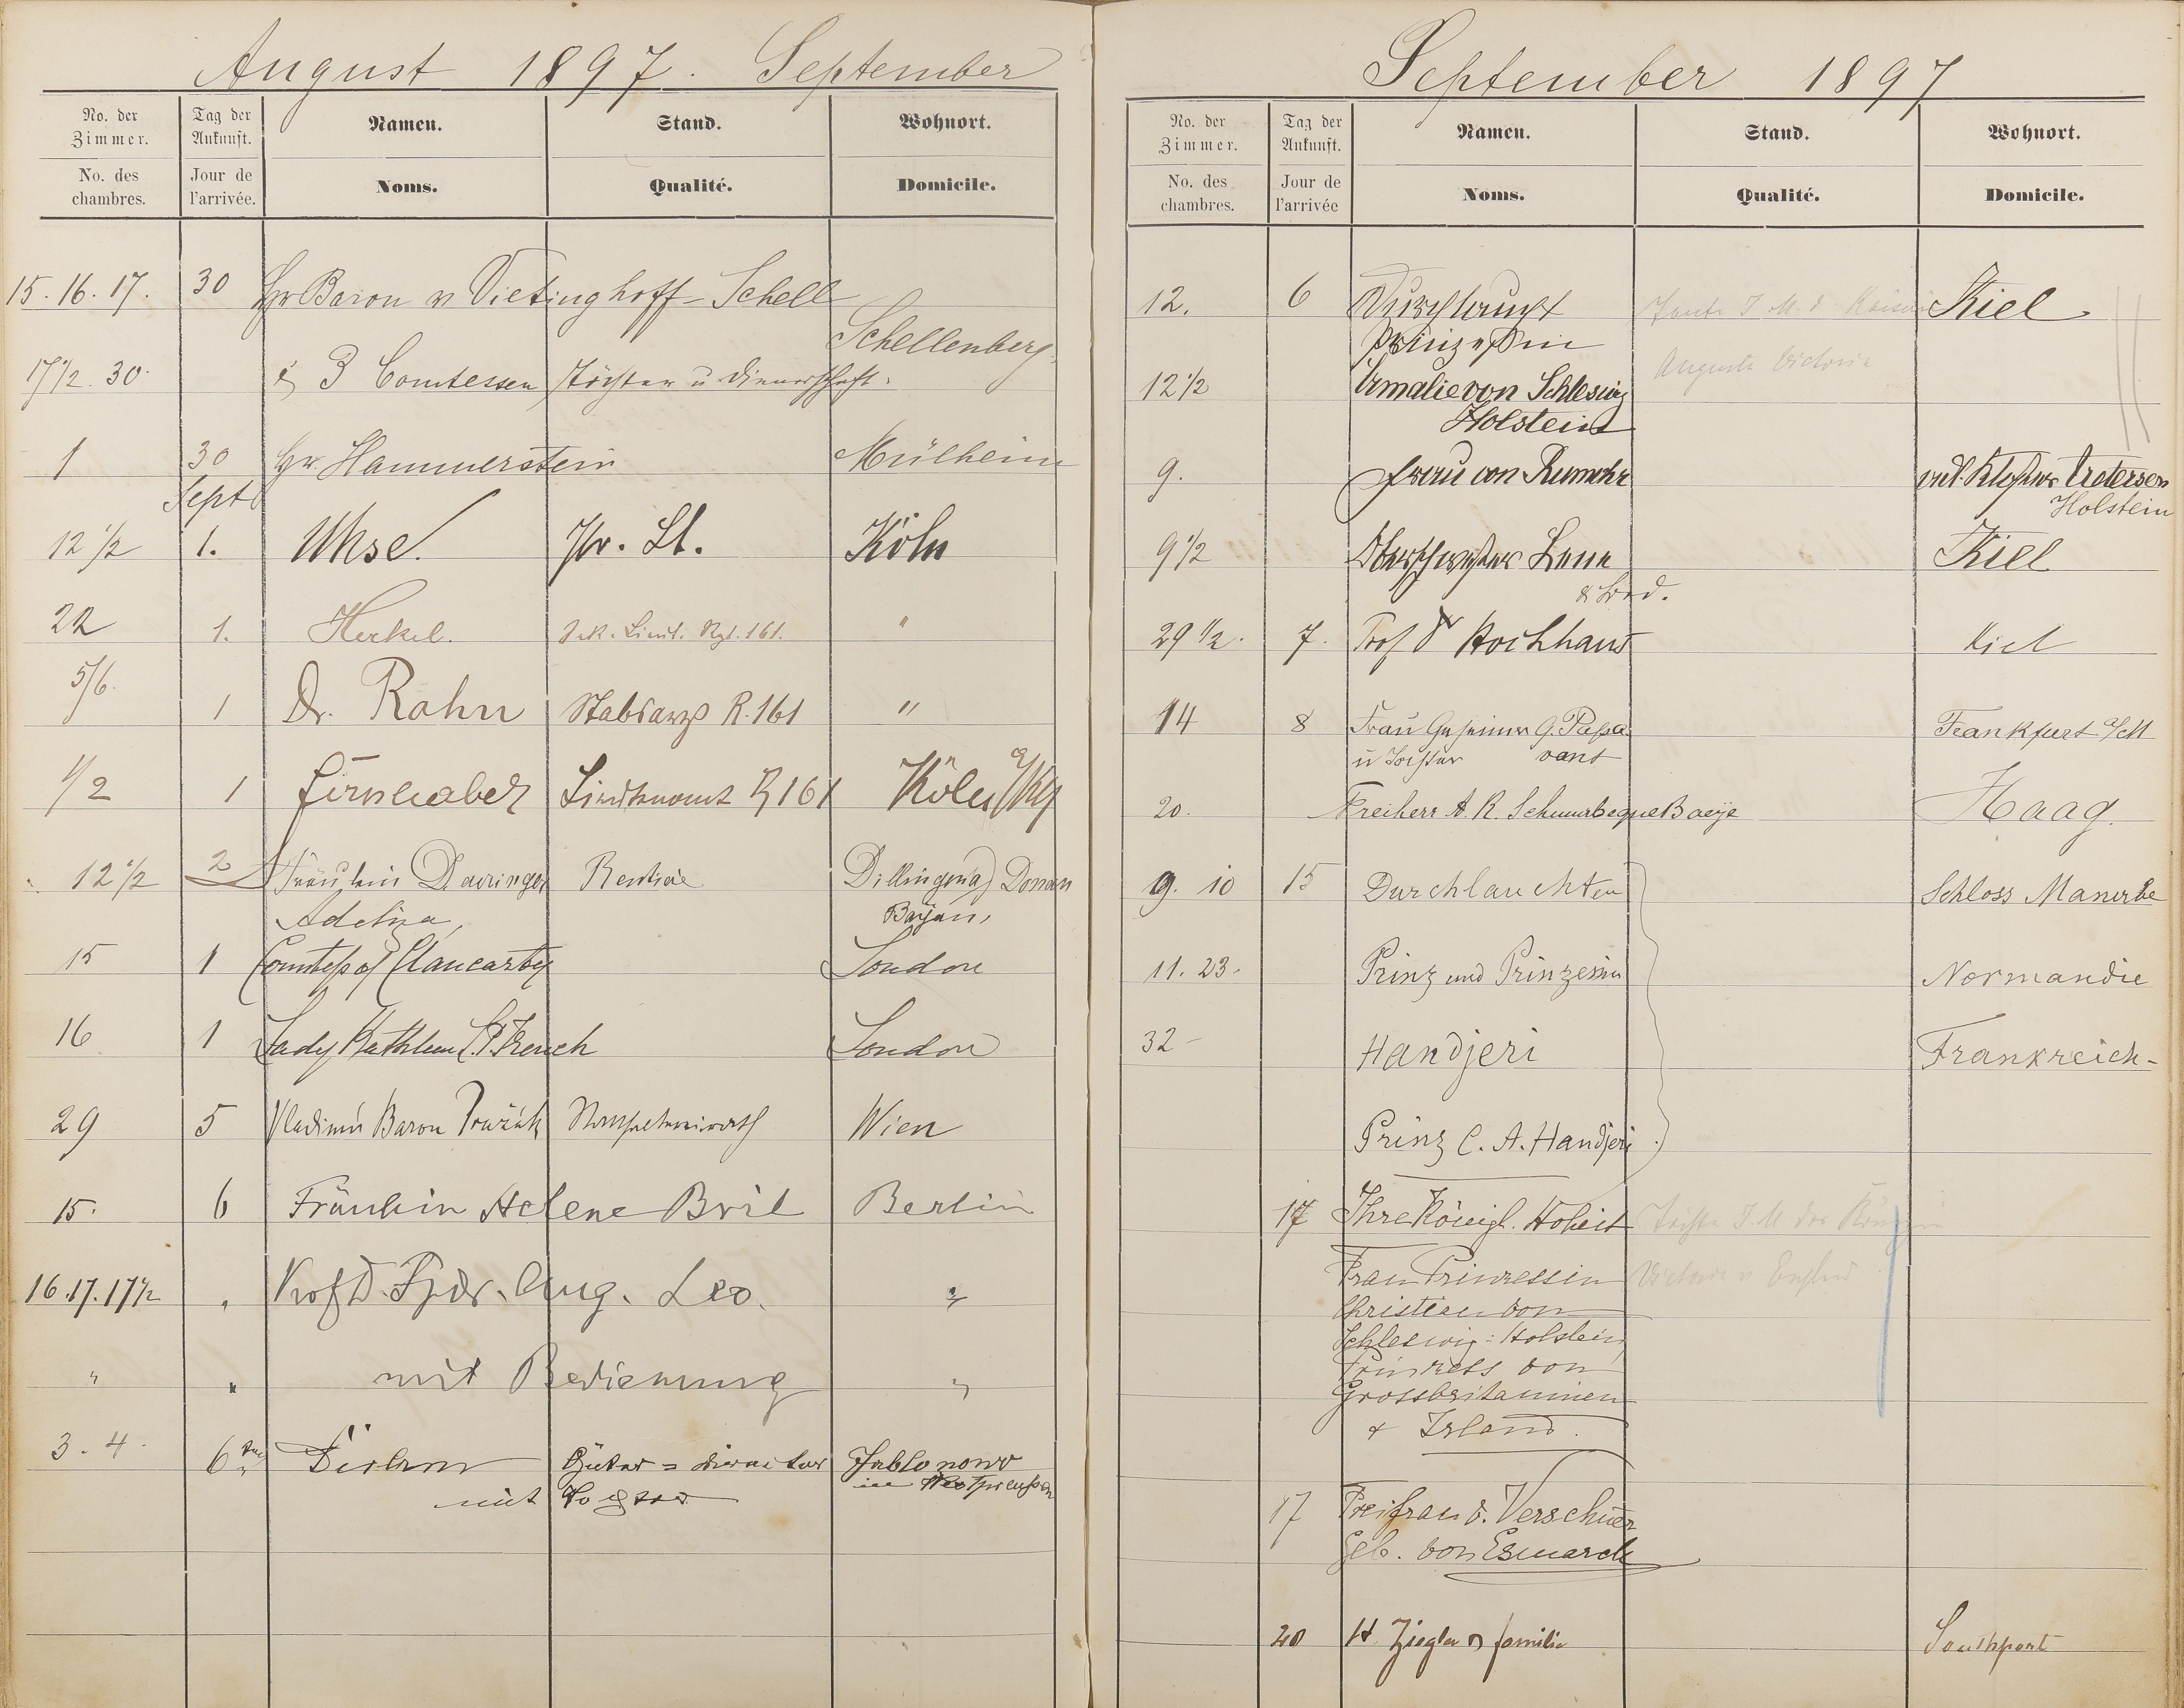 August 1897. September
No. der Zimmer. Tag der Ankunft. Namen. Stand. Wohnort.
No. des chambres. Jour de l'arrivée. Noms. Qualité. Domicile.
15. 16. 17. 30 Hr Baron v Vietinghoff-Schell
Schellenberg.
17 1/2. 30. & 3 Comtessen Töchter u Dienerschaft.
1 30 Hr. Hammerstein Mülheim
Sept
12 1/2 1. Uhse. Pr. Lt. Köln
22 1. Herkel. Sek. Lieut. Rgt. 161. "
5/6. 1 Dr. Rahn Stabsarzt R. 161 "
1/2 1 Lieutenant R 161 Köln
12 1/2 2 Fräulein Rentière Donau
Bayern,
15 1 Countess of Clancarty London
16 1 Lady Kathleen L. P. Trench London
29 5 Vladimir Baron Wien
15. 6 Fräulein Helene Bril Berlin
16. 17. 17 1/2 " Aug. Leo. "
" " mit Bedienung "
3. 4. 6 Güter=director Jablonowo
mit Tochter in Westpreußen
September 1897
No. der Zimmer. Tag der Ankunft. Namen. Stand. Wohnort.
No. des chambres. Jour de l'arrivée Noms. Qualité. Domicile.
12. 6 Durchlaucht Tante I. M. d Kaiserin Kiel
Prinzeßin Auguste Victoria
12 1/2 Amalie von Schleswig
Holstein
9. Frau von Rumohr Uetersen
Holstein
9 1/2 Oberschwester Lene Kiel
& Bed.
29 1/2. 7. Prof Dr Hochhaus Kiel
14 8 Frau Geheimr G. Passa Frankfurt a/M
u Tochter vant
20. Freiherr A. R. Schuurbeque Boeije Haag.
9. 10 15 Durchlauchten Schloss Manerbe
11. 23. Prinz und Prinzessin Normandie
32 - Handjeri Frankreich-
Prinz C. A. Handjeri
17 Ihre Königl. Hoheit Tochter I. M der Königin
Frau Prinzessin Victoria v England
Christian von
Schleswig-Holstein
Prinzess von
Grossbritannien
& Irland.
17 Freifrau v. Verschuer
geb. von Esmarch
20 H. Ziegler & familie Southport